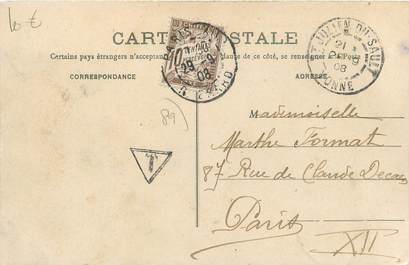 10 €
CARTE POSTALE
Certains pays étrangers n'acceptant de ce côté, se renseigner à la Poste
CORRESPONDANCE
ADRESSE
10
29
08
ST JULIEN-DU-SAULT
21
08
YONNE
(89)
T
Mademoiselle
Marthe Format
87 Rue de Claude Decaen
Paris
XII